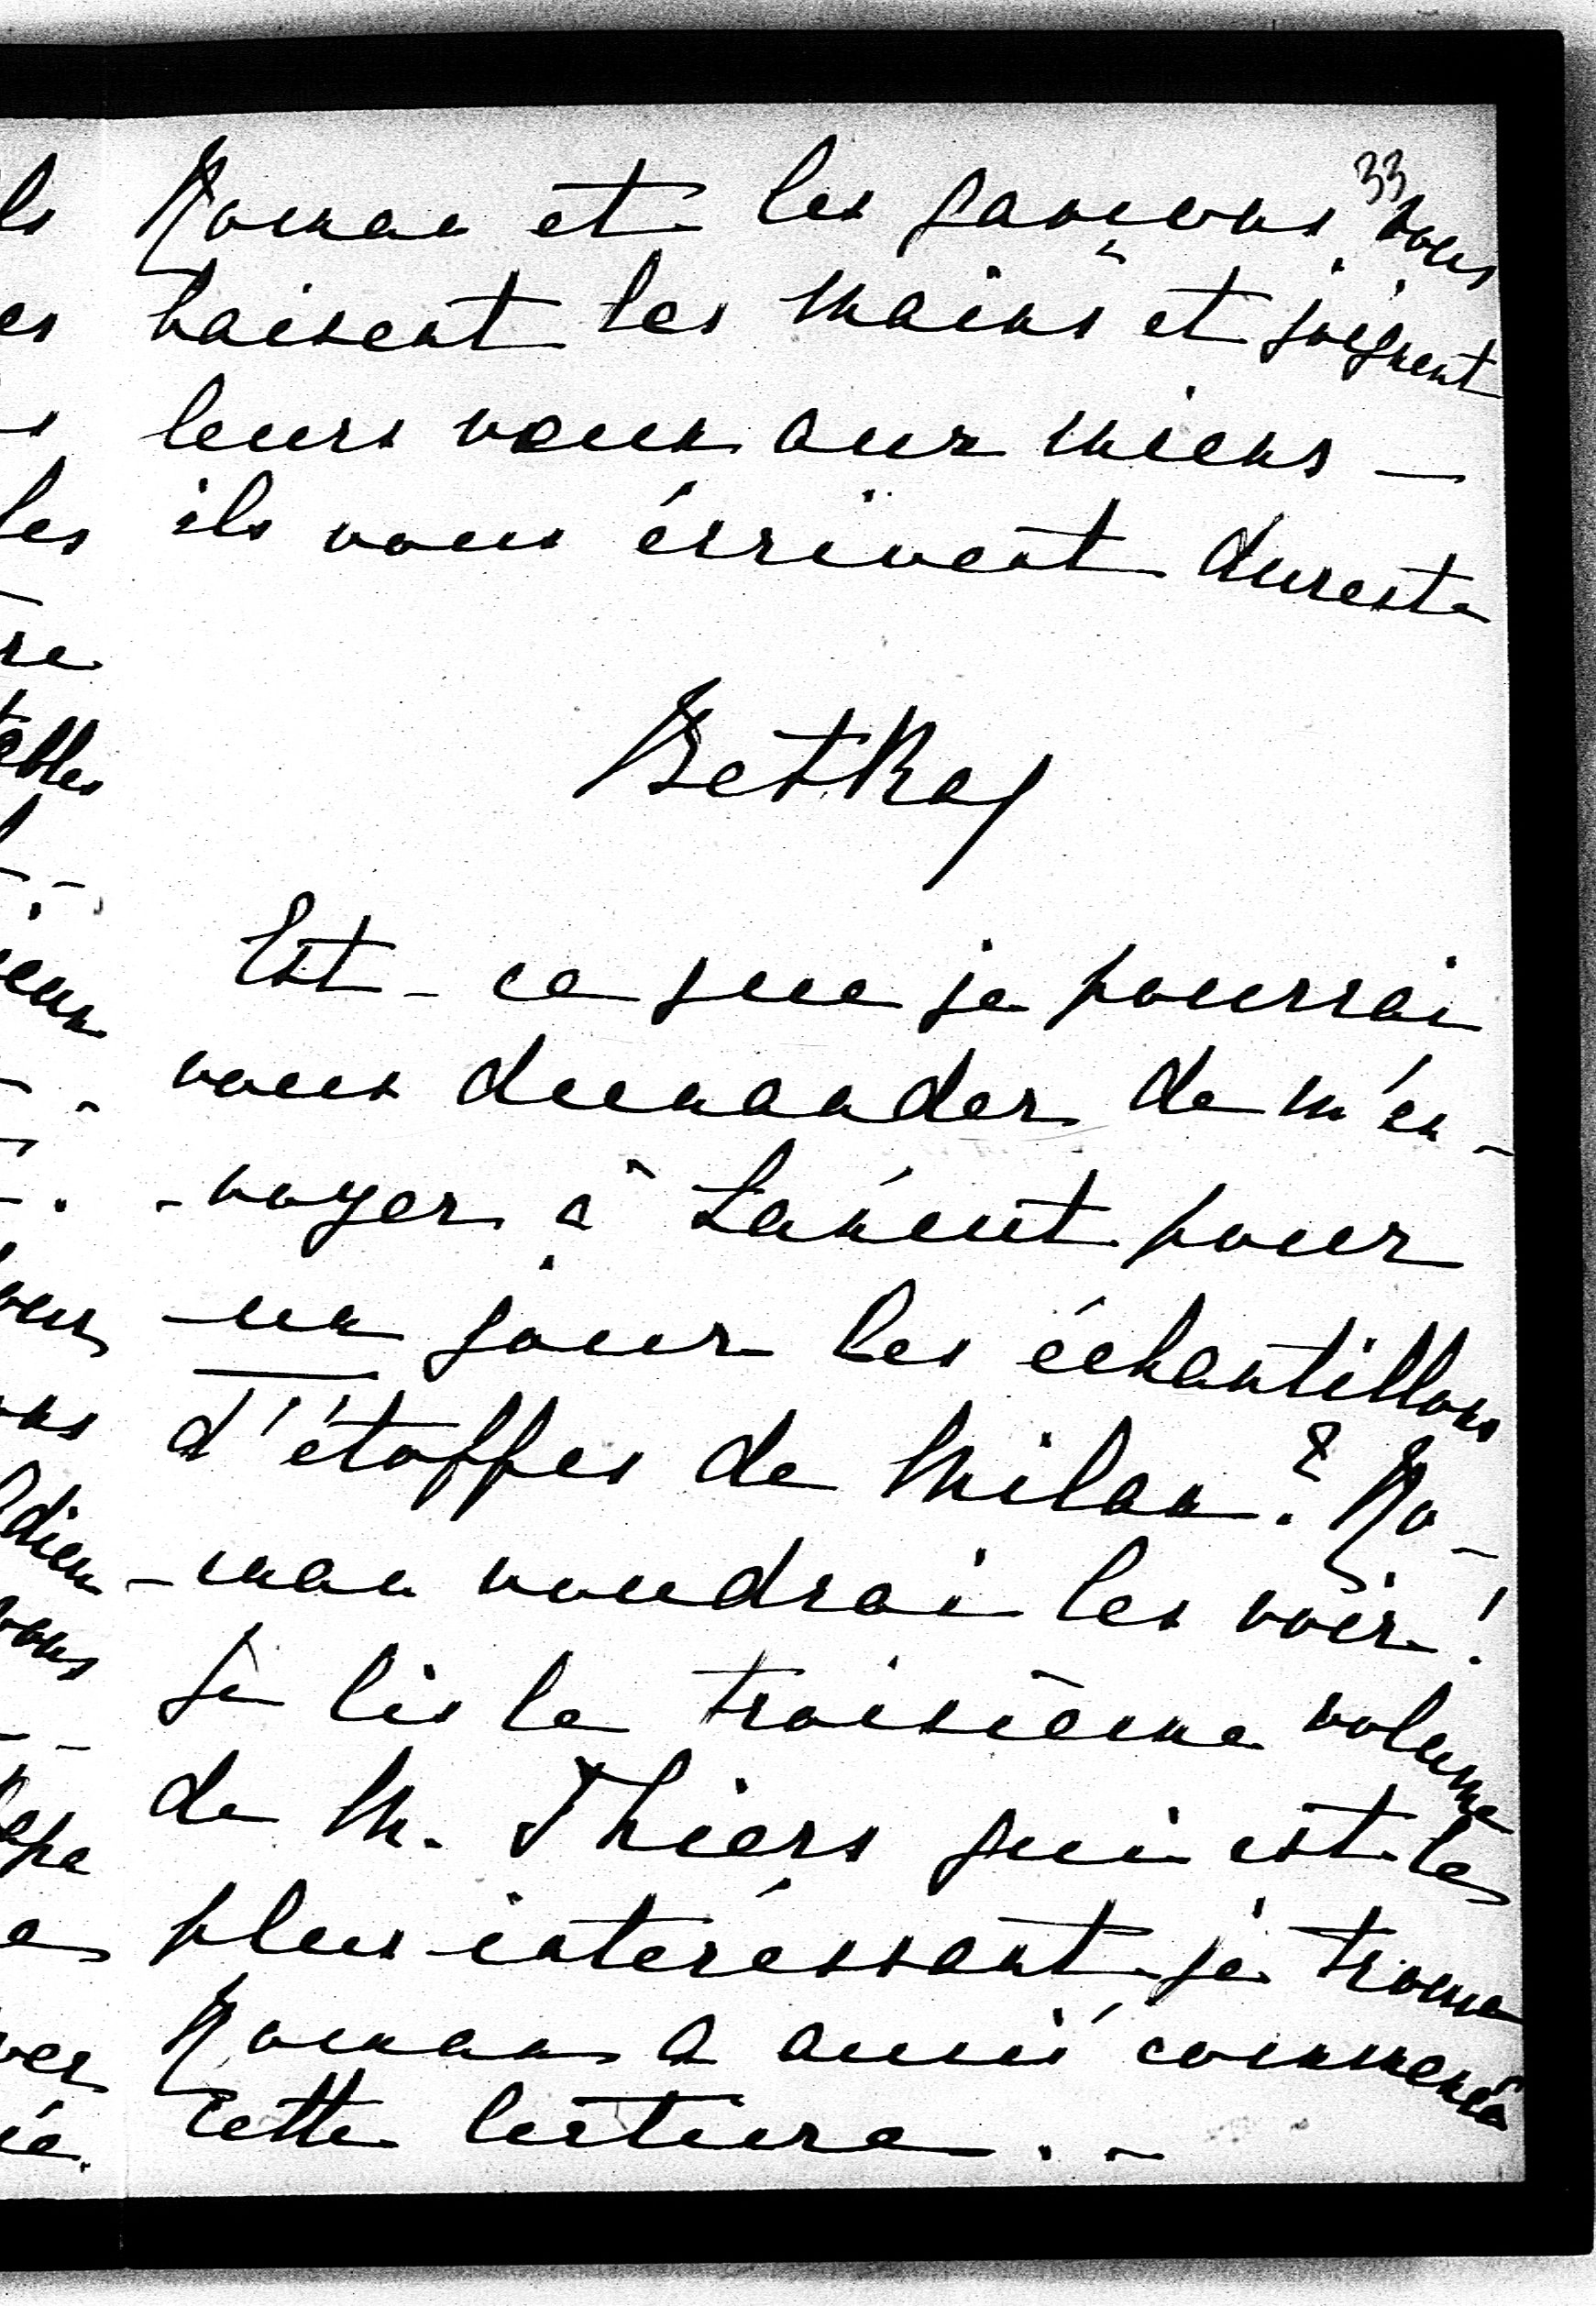 33
Roman et les garçons vous
baisent les mains et joignent
leurs vœux aux miens —
ils vous écrivent dureste
Est-ce que je pourrai
vous demander de m'en-
-voyer à Łańcut pour
un jour les échantillons
d'étoffes de Milan? Ro-
-man voudrai les voir!
Je lis le troisième volume
de M. Thiers qui est le
plus intéressant je trouve
Roman a aussi commencé
cette lecture. -